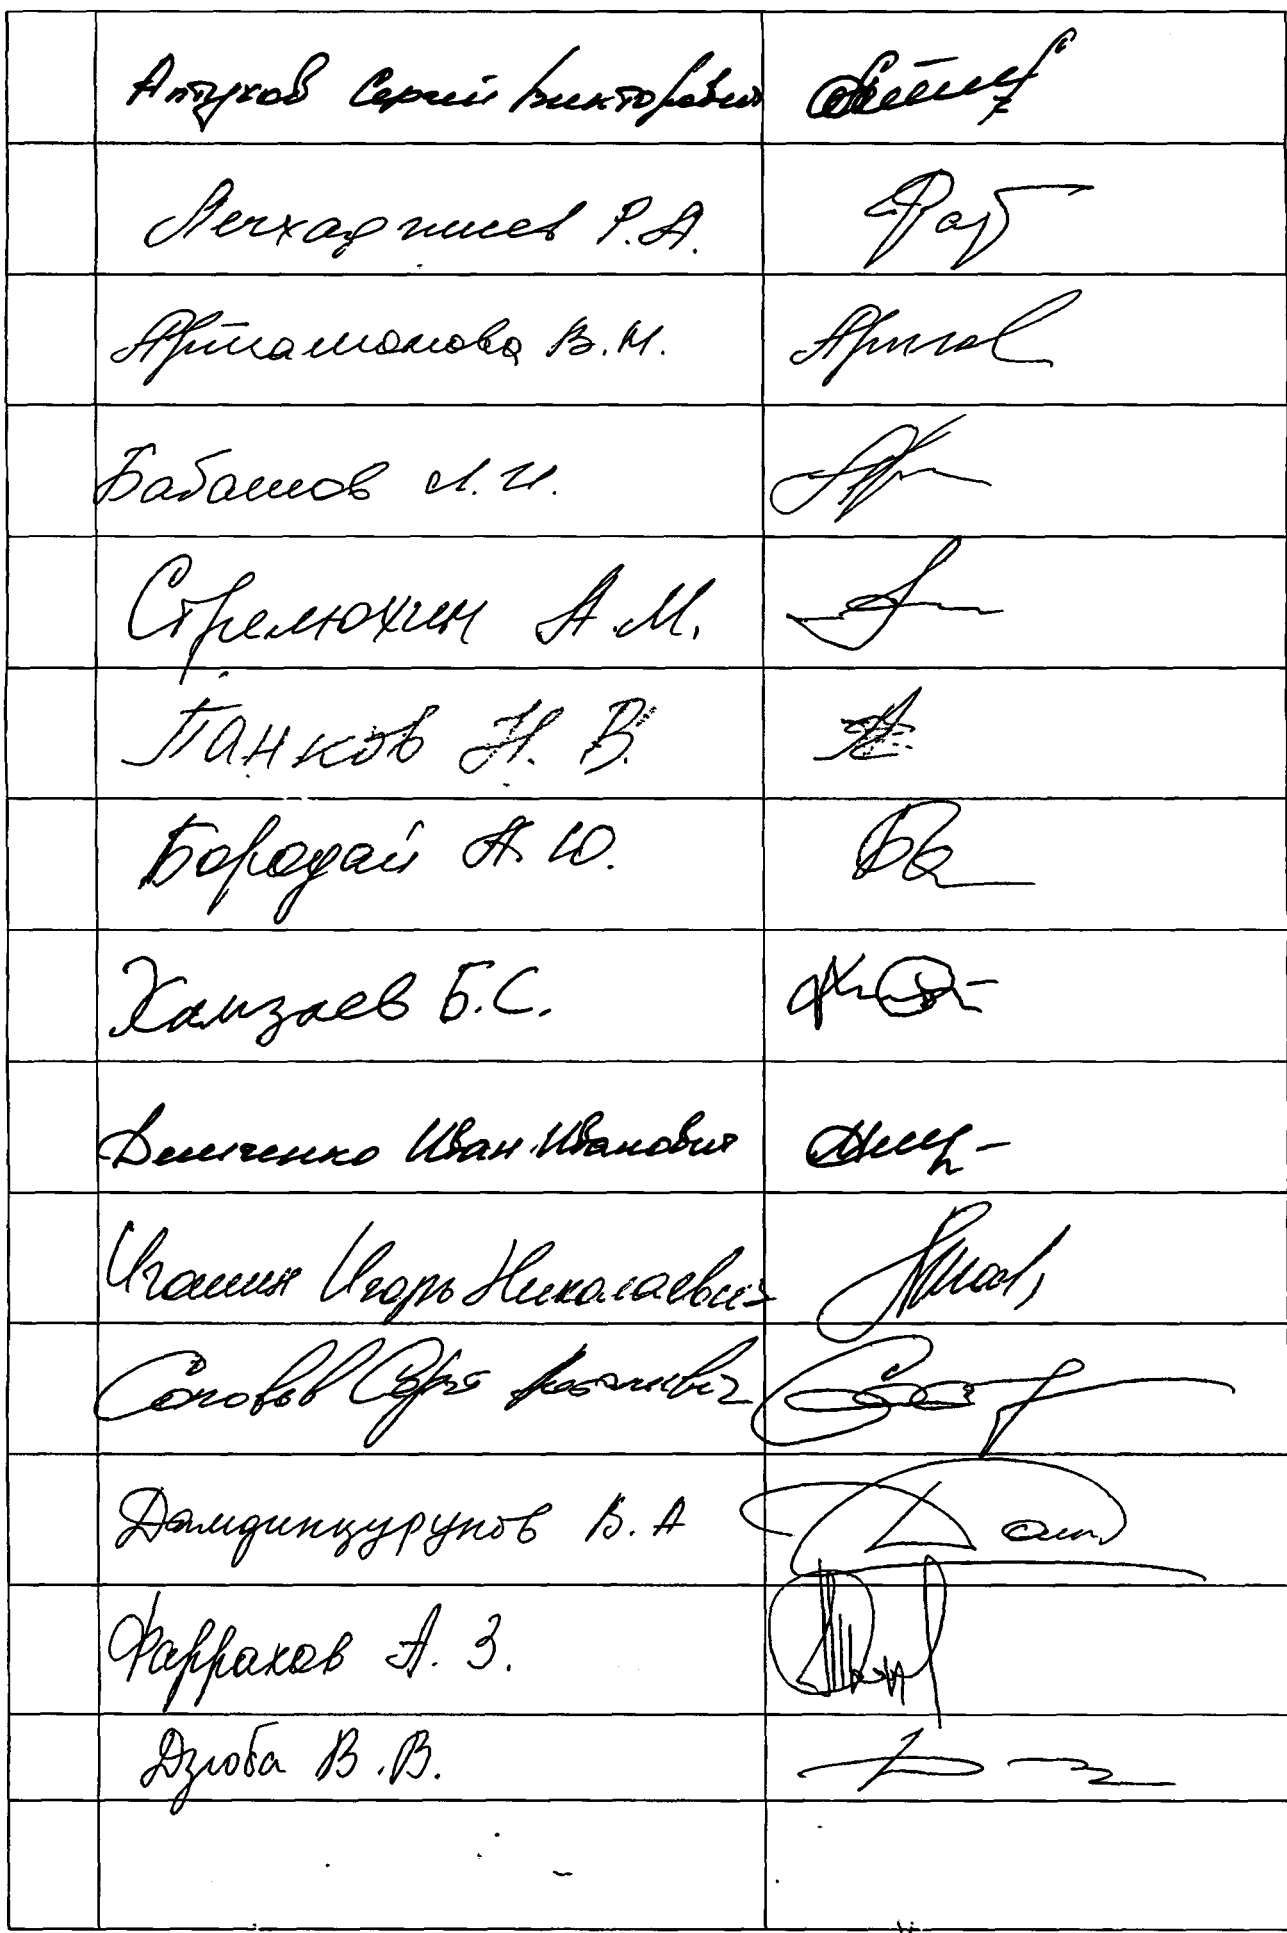 Аптуков Сергей Викторович
Лечхаджиев Р.А.
Артамонова В.М.
Бабашов Л.И.
Стрелюхин А.М.
Панков Н.В.
Бородай А.Ю.
Хамзаев Б.С.
Демченко Иван Иванович
Игошин Игорь Николаевич
Соловьев Сергей
Дамдинцурунов В.А
Фаррахов А.З.
Дзюба В.В.